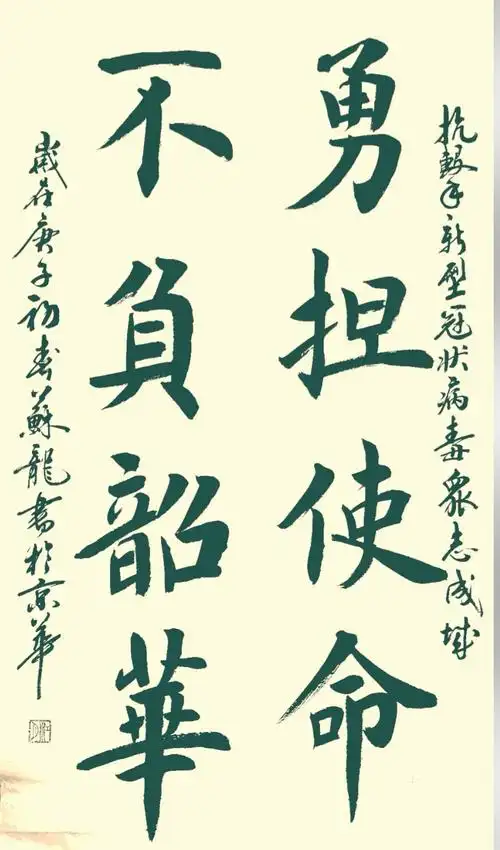 抗擊新型冠状病毒眾志成城
勇担使命
不負韶華
歲在庚子初春蘇龍書於京華